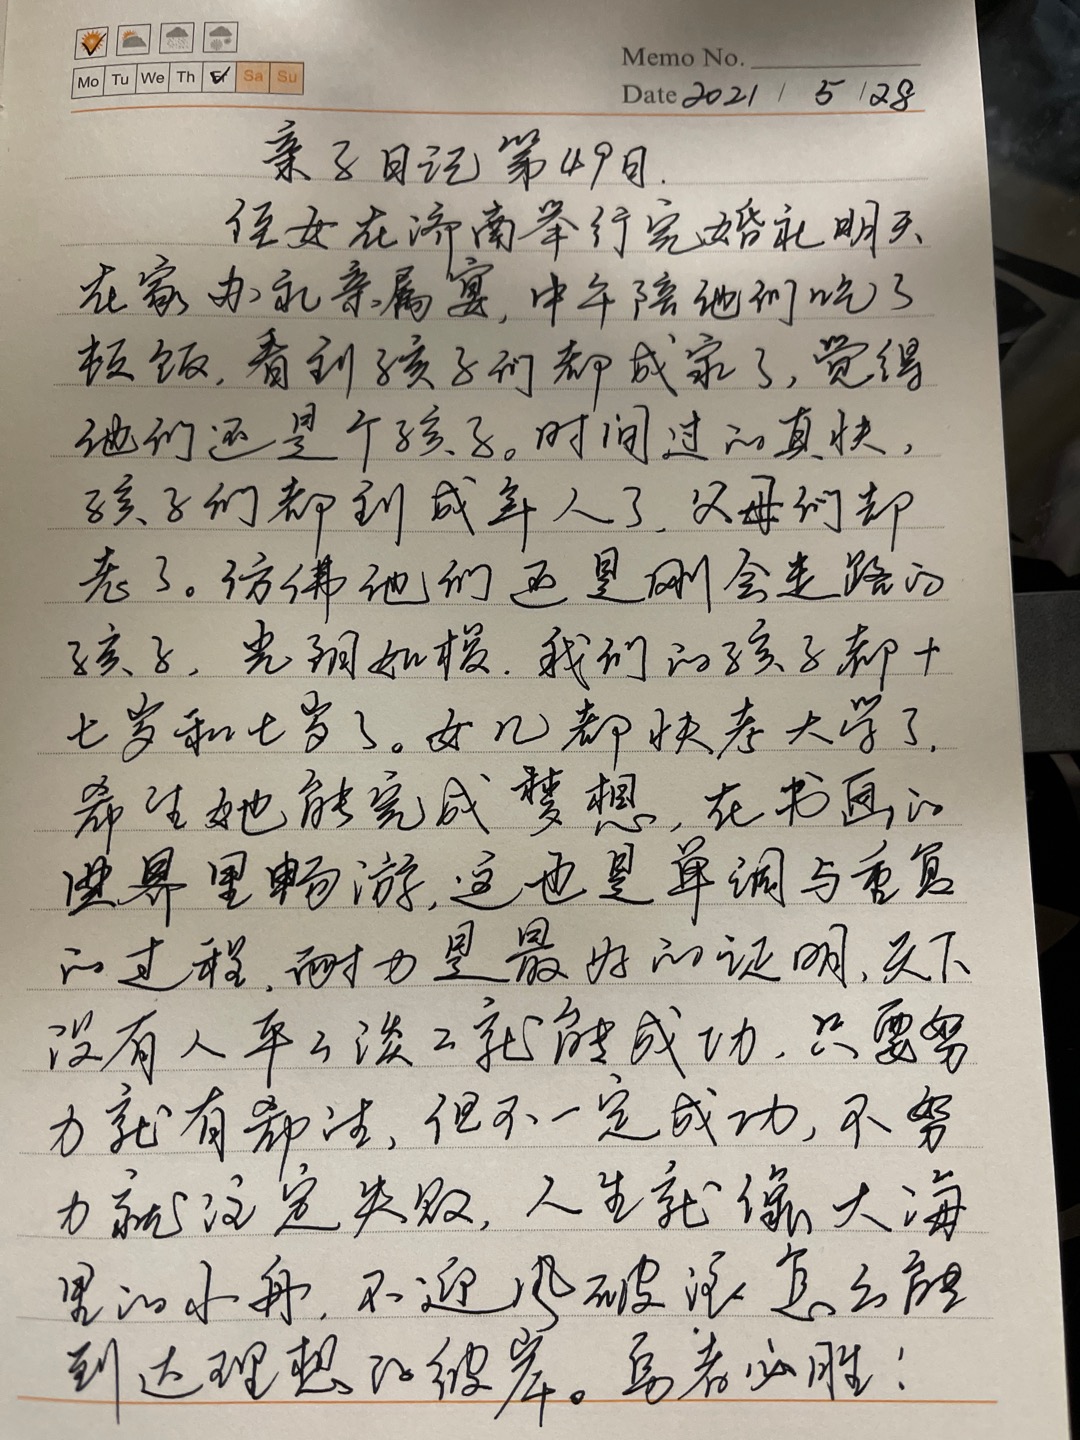 Mo Tu We Th Fr Sa Su
Memo No.
Date 2021 / 5 / 28
亲子日记第49日.
侄女在济南举行完婚礼明天
在家办礼亲属宴,中午陪他们吃了
顿饭,看到孩子们都成家了,觉得
他们还是个孩子。时间过的真快,
孩子们都到成年人了,父母们却
老了。仿佛他们还是刚会走路的
孩子,光阴如梭.我们的孩子都十
七岁和七岁了。女儿都快考大学了,
希望她能完成梦想,在书画的
世界里畅游,这也是单调与重复
的过程,耐力是最好的证明,天下
没有人平平淡淡就能成功,只要努
力就有希望,但不一定成功,不努
力就注定失败,人生就像大海
里的小舟,不迎风破浪怎么能
到达理想的彼岸。勇者必胜!